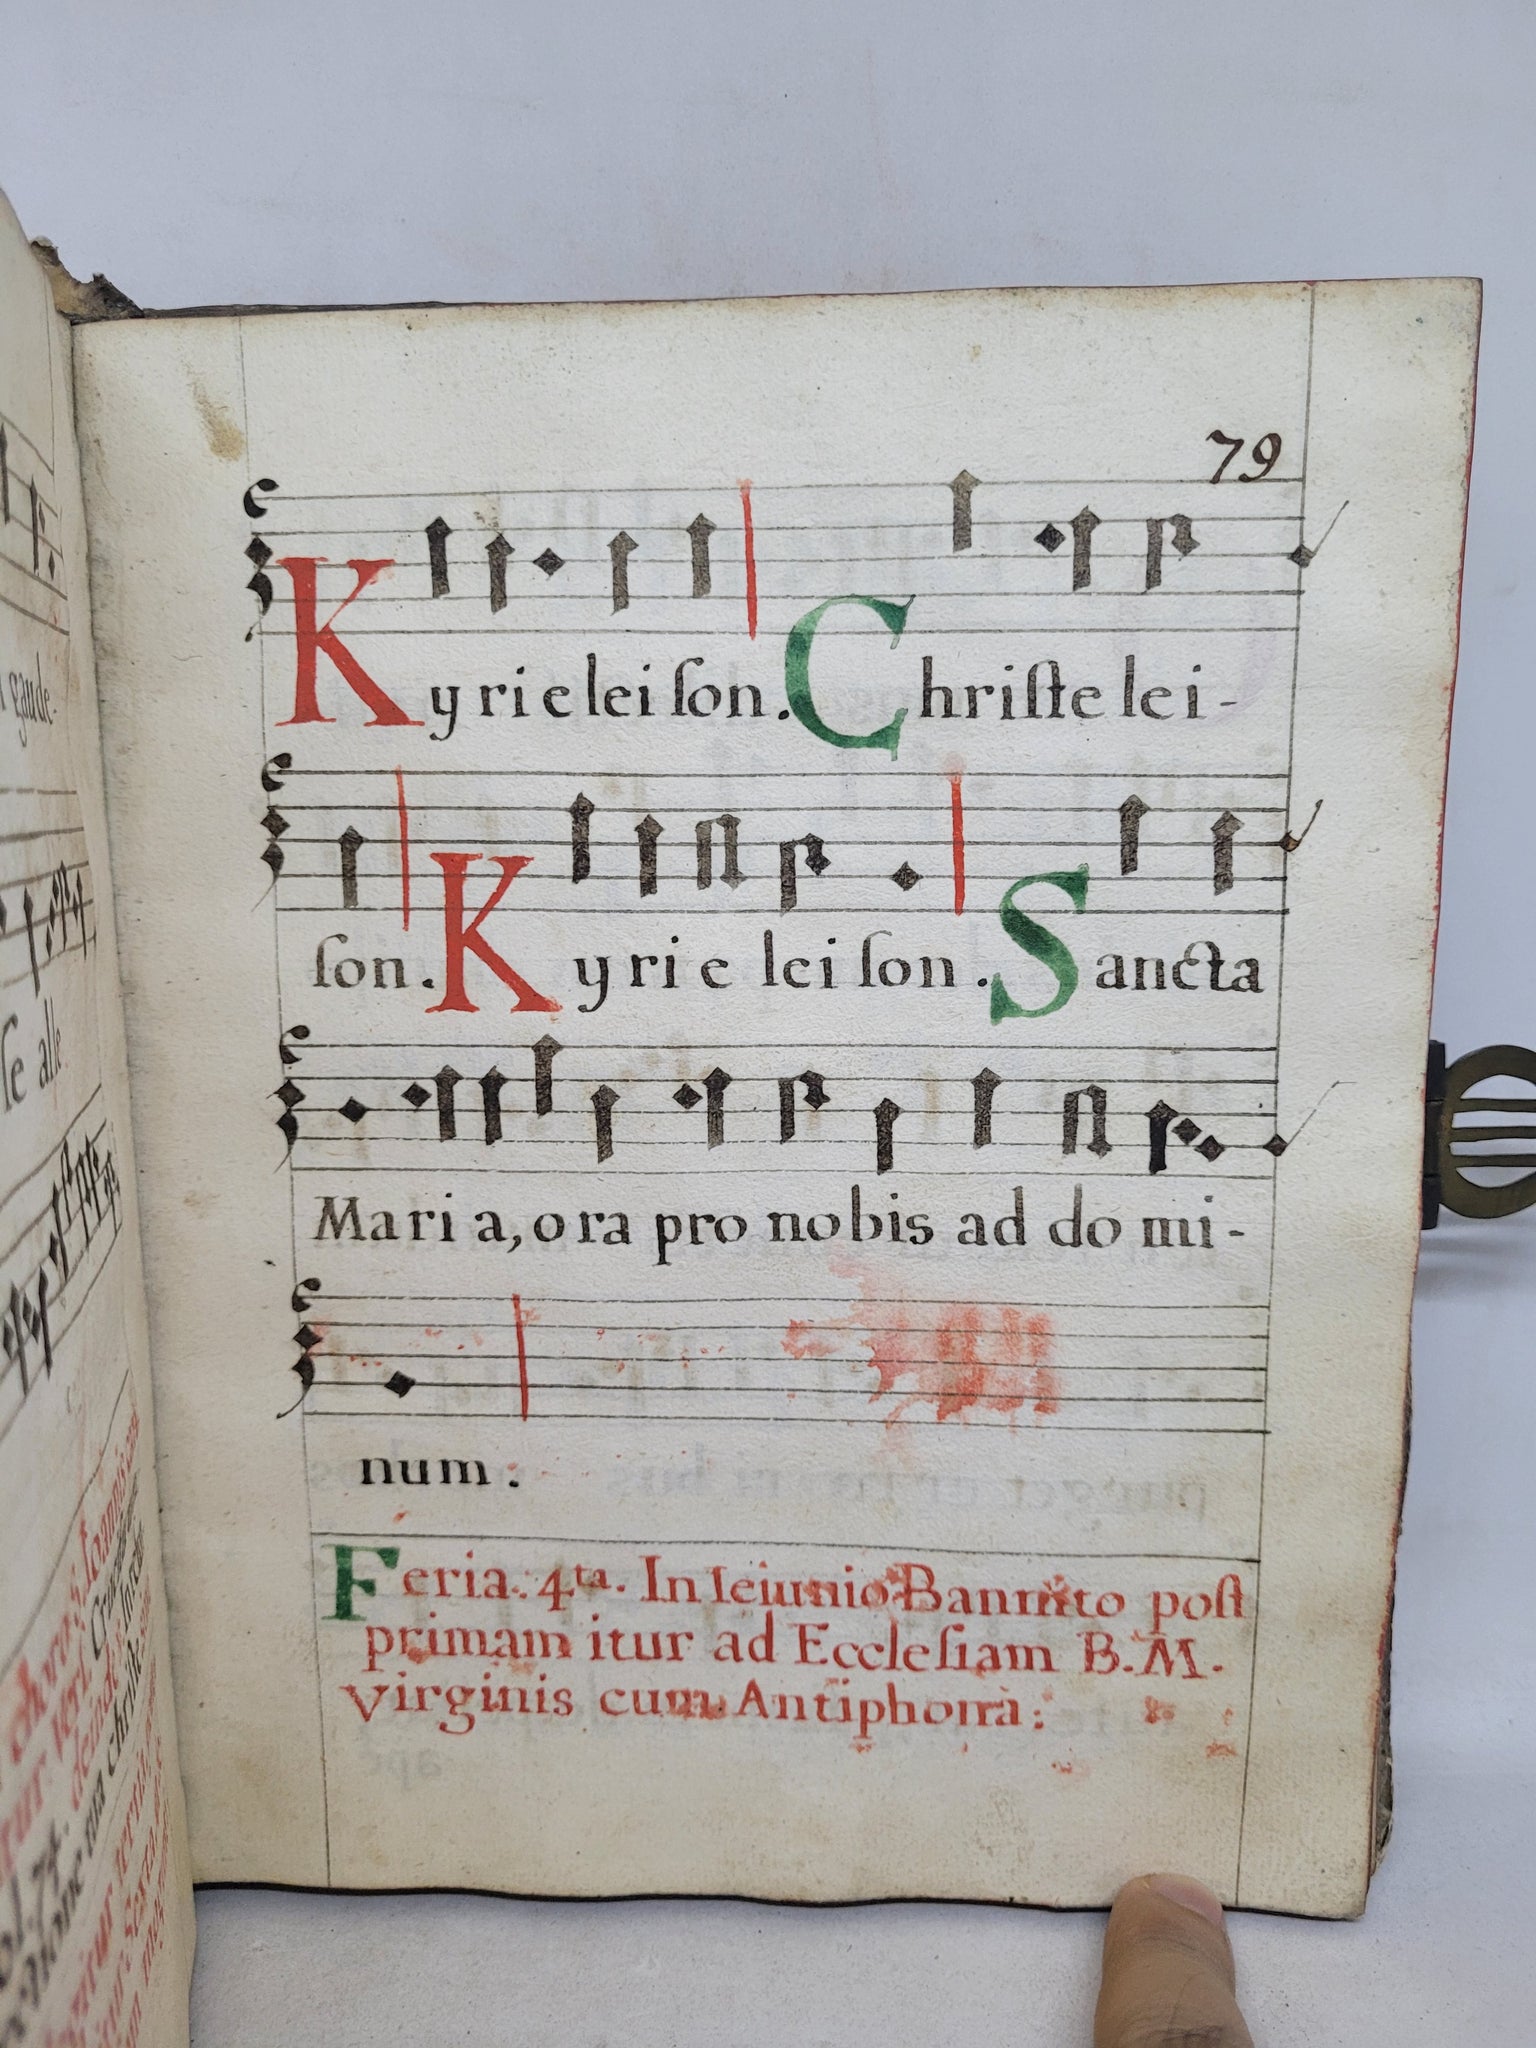 gaude-
se alle
79
Kyrie leiſon. Chriſte lei-
ſon. Kyrie leiſon. Sancta
Maria, ora pro nobis ad domi-
num.
Feria. 4ta. In Ieiunio Bannito poſt
primam itur ad Eccleſiam B. M.
virginis cum Antiphona: